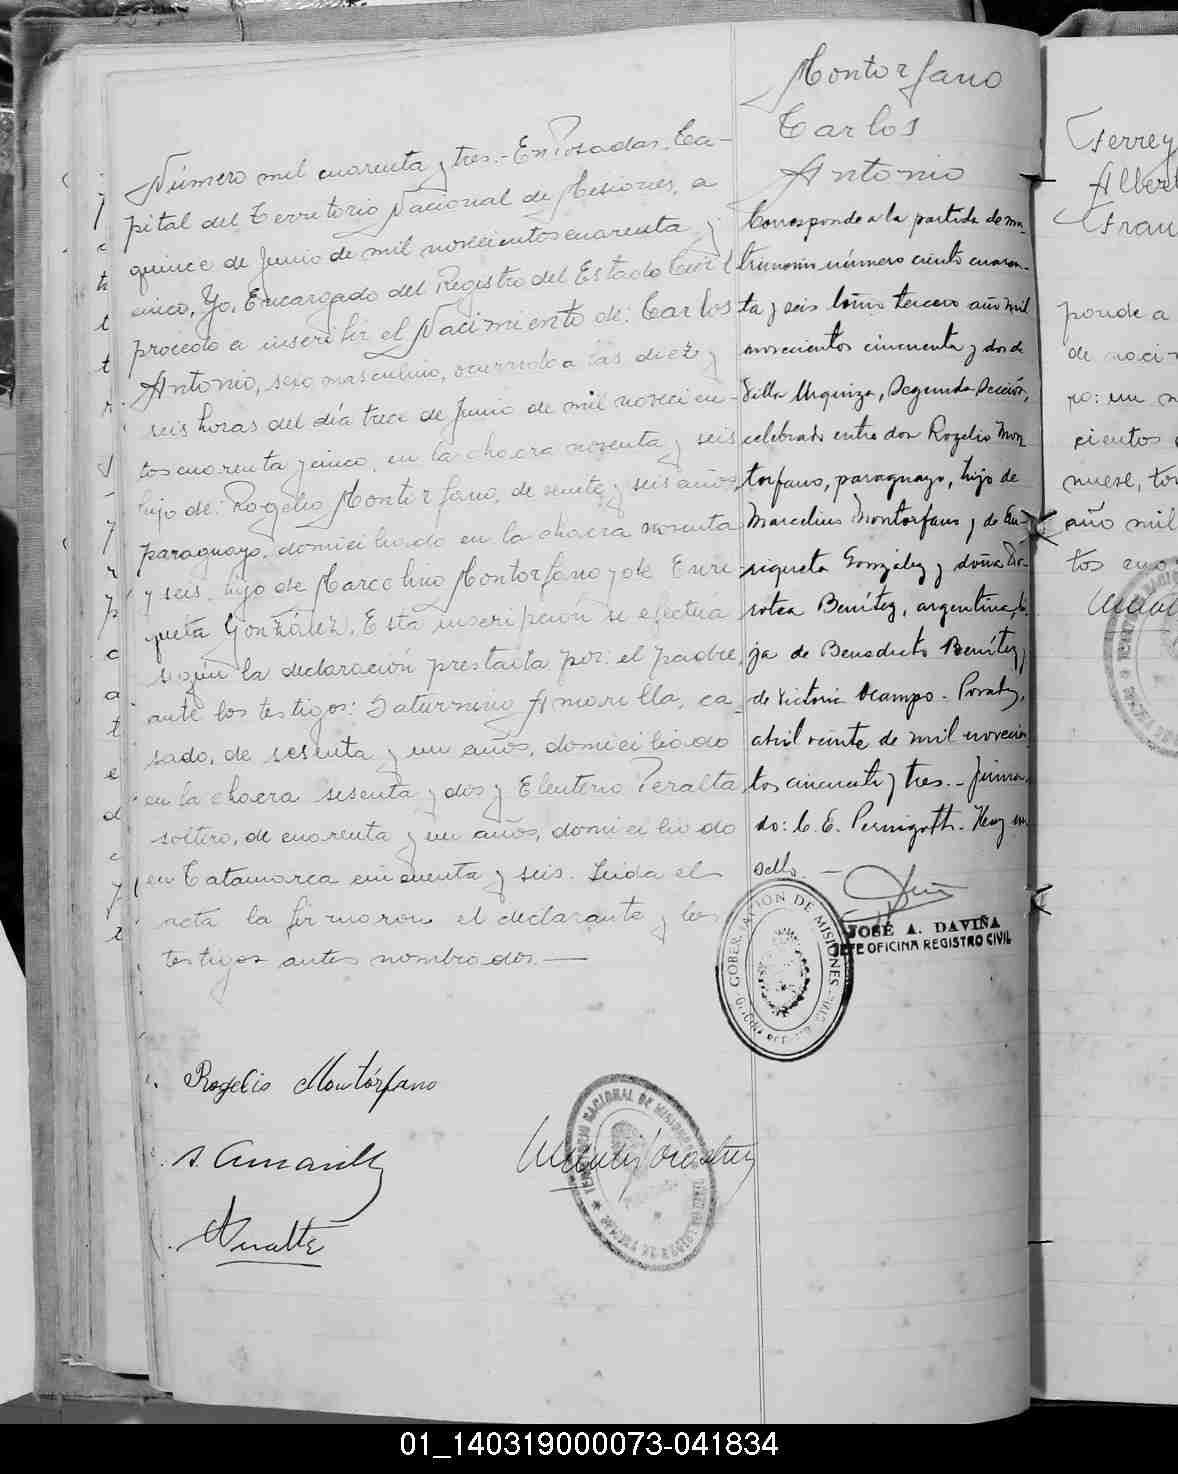 Montorfano
Carlos
Antonio
Número mil cuarenta y tres.- En Posadas, Ca-
pital del Territorio Nacional de Misiones, a
quince de Junio de mil novecientos cuarenta y
cinco, Yo, Encargado del Registro del Estado Civil
procedo a inscribir el Nacimiento de: Carlos
Antonio, sexo masculino, ocurrido a las diez y
seis horas del día trece de Junio de mil novecien-
tos cuarenta y cinco, en la chacra noventa y seis
hijo de: Rogelio Montorfano, de veinte y seis años,
paraguayo, domiciliado en la chacra noventa
y seis, hijo de Marcelino Montorfano y de Enri-
queta González. Esta inscripción se efectúa
según la declaración prestada por: el padre,
ante los testigos: Saturnino Amarilla, ca-
sado, de sesenta y un años, domiciliado
en la chacra sesenta y dos y Eleuterio Peralta
soltero, de cuarenta y un años, domiciliado
en Catamarca cincuenta y seis. Leida el
acta la firmaron el declarante y los
testigos antes nombrados.—
Rogelio Montórfano
S. Amarilla
Peralta
Corresponde a la partida de ma-
trimonio número ciento cuaren-
ta y seis tomo tercero año mil
novecientos cincuenta y dos de
Villa Urquiza, Segunda Sección,
celebrado entre don Rogelio Mon-
torfano, paraguayo, hijo de
Marcelino Montorfano y de En-
riqueta González y doña Do-
rotea Benítez, argentina, hi-
ja de Benedicto Benítez y
de Victoria Ocampo.- Posadas,
abril veinte de mil novecien-
tos cincuenta y tres.- Firma-
do: C. E. Pernigotti. Hay un
sello. —
JOSÉ A. DAVIÑA
JEFE OFICINA REGISTRO CIVIL
GOBERNACION DE MISIONES
TERRITORIO NACIONAL DE MISIONES
Ferrey
Albert
Fran
ponde a
de naci
ro: un m
cientos
nueve, to
año mil
tos
01_140319000073-041834